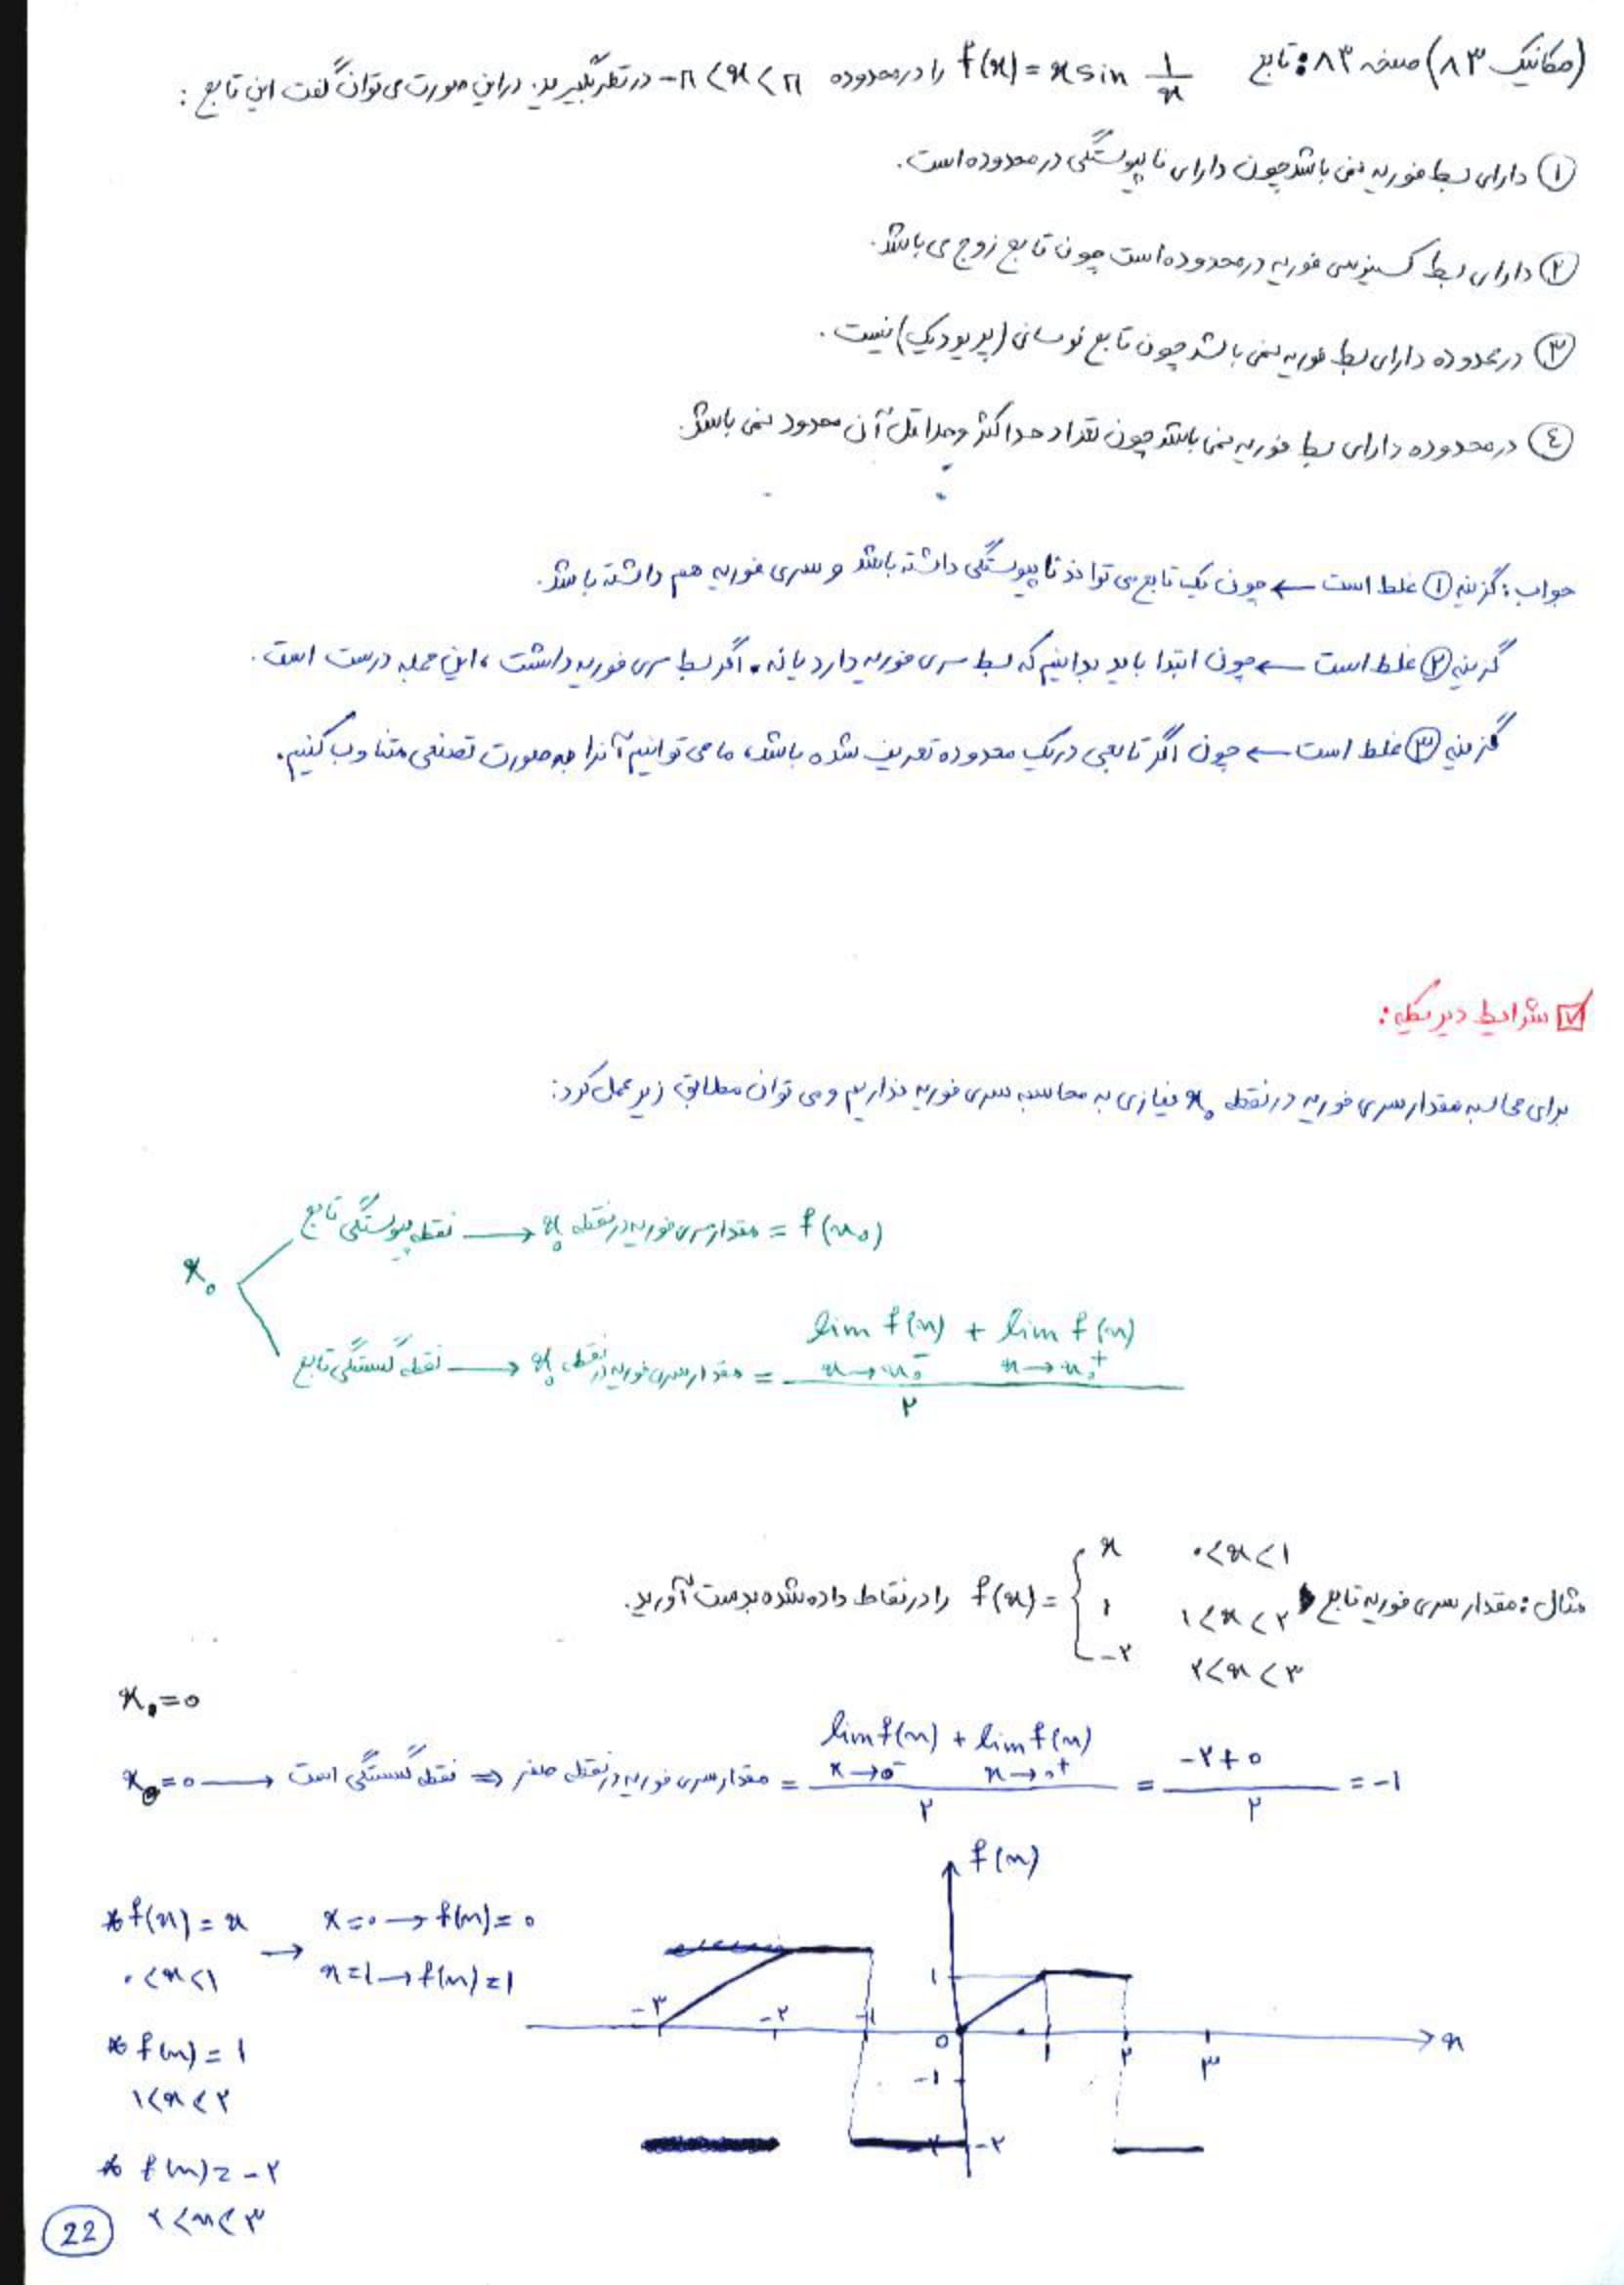 (مکانیک ۸۳) صفحه ۸۳: تابع f(x) = x sin 1/x را در محدوده -π < x < π در نظر بگیرید. در این صورت می توان گفت این تابع :
① دارای بسط فوریه نمی باشد چون دارای ناپیوستگی در محدوده است.
② دارای بسط کسینوسی فوریه در محدوده است چون تابع زوج می باشد.
③ در محدوده دارای بسط فوریه نمی باشد چون تابع نوسانی (پریودیک) نیست.
④ در محدوده دارای بسط فوریه نمی باشد چون تعداد حداکثر و حداقل آن محدود نمی باشد.
جواب: گزینه ① غلط است ← چون یک تابع می تواند ناپیوستگی داشته باشد و سری فوریه هم داشته باشد.
گزینه ② غلط است ← چون ابتدا باید بدانیم که بسط سری فوریه دارد یا نه. اگر بسط سری فوریه داشت، این جمله درست است.
گزینه ③ غلط است ← چون اگر تابعی در یک محدوده تعریف شده باشد، ما می توانیم آنرا به صورت تصنعی متناوب کنیم.
☑ شرایط دیریکله:
برای محاسبه مقدار سری فوریه در نقطه x₀ نیازی به محاسبه سری فوریه نداریم و می توان مطابق زیر عمل کرد:
نقطه پیوستگی تابع → مقدار سری فوریه در نقطه x₀ = f(x₀)
x₀
نقطه گسستگی تابع → مقدار سری فوریه در نقطه x₀ = (lim f(x) x→x₀⁻ + lim f(x) x→x₀⁺) / ۲
مثال: مقدار سری فوریه تابع f(x) = { x ۰<x<۱
۱ ۱<x<۲
-۲ ۲<x<۳
را در نقاط داده شده بدست آورید.
x₀=0
x₀=0 → نقطه گسستگی است ⇒ مقدار سری فوریه در نقطه صفر = (lim f(x) x→0⁻ + lim f(x) x→0⁺) / ۲ = (-۲+0) / ۲ = -۱
f(x)
* f(x) = x → x=0 → f(x)=0
۰<x<۱ x=1 → f(x)=1
-۳ -۲ -۱ 0 ۱ ۲ ۳ x
۱
-۱
-۲
* f(x) = 1
۱<x<۲
* f(x) = -۲
۲<x<۳
22